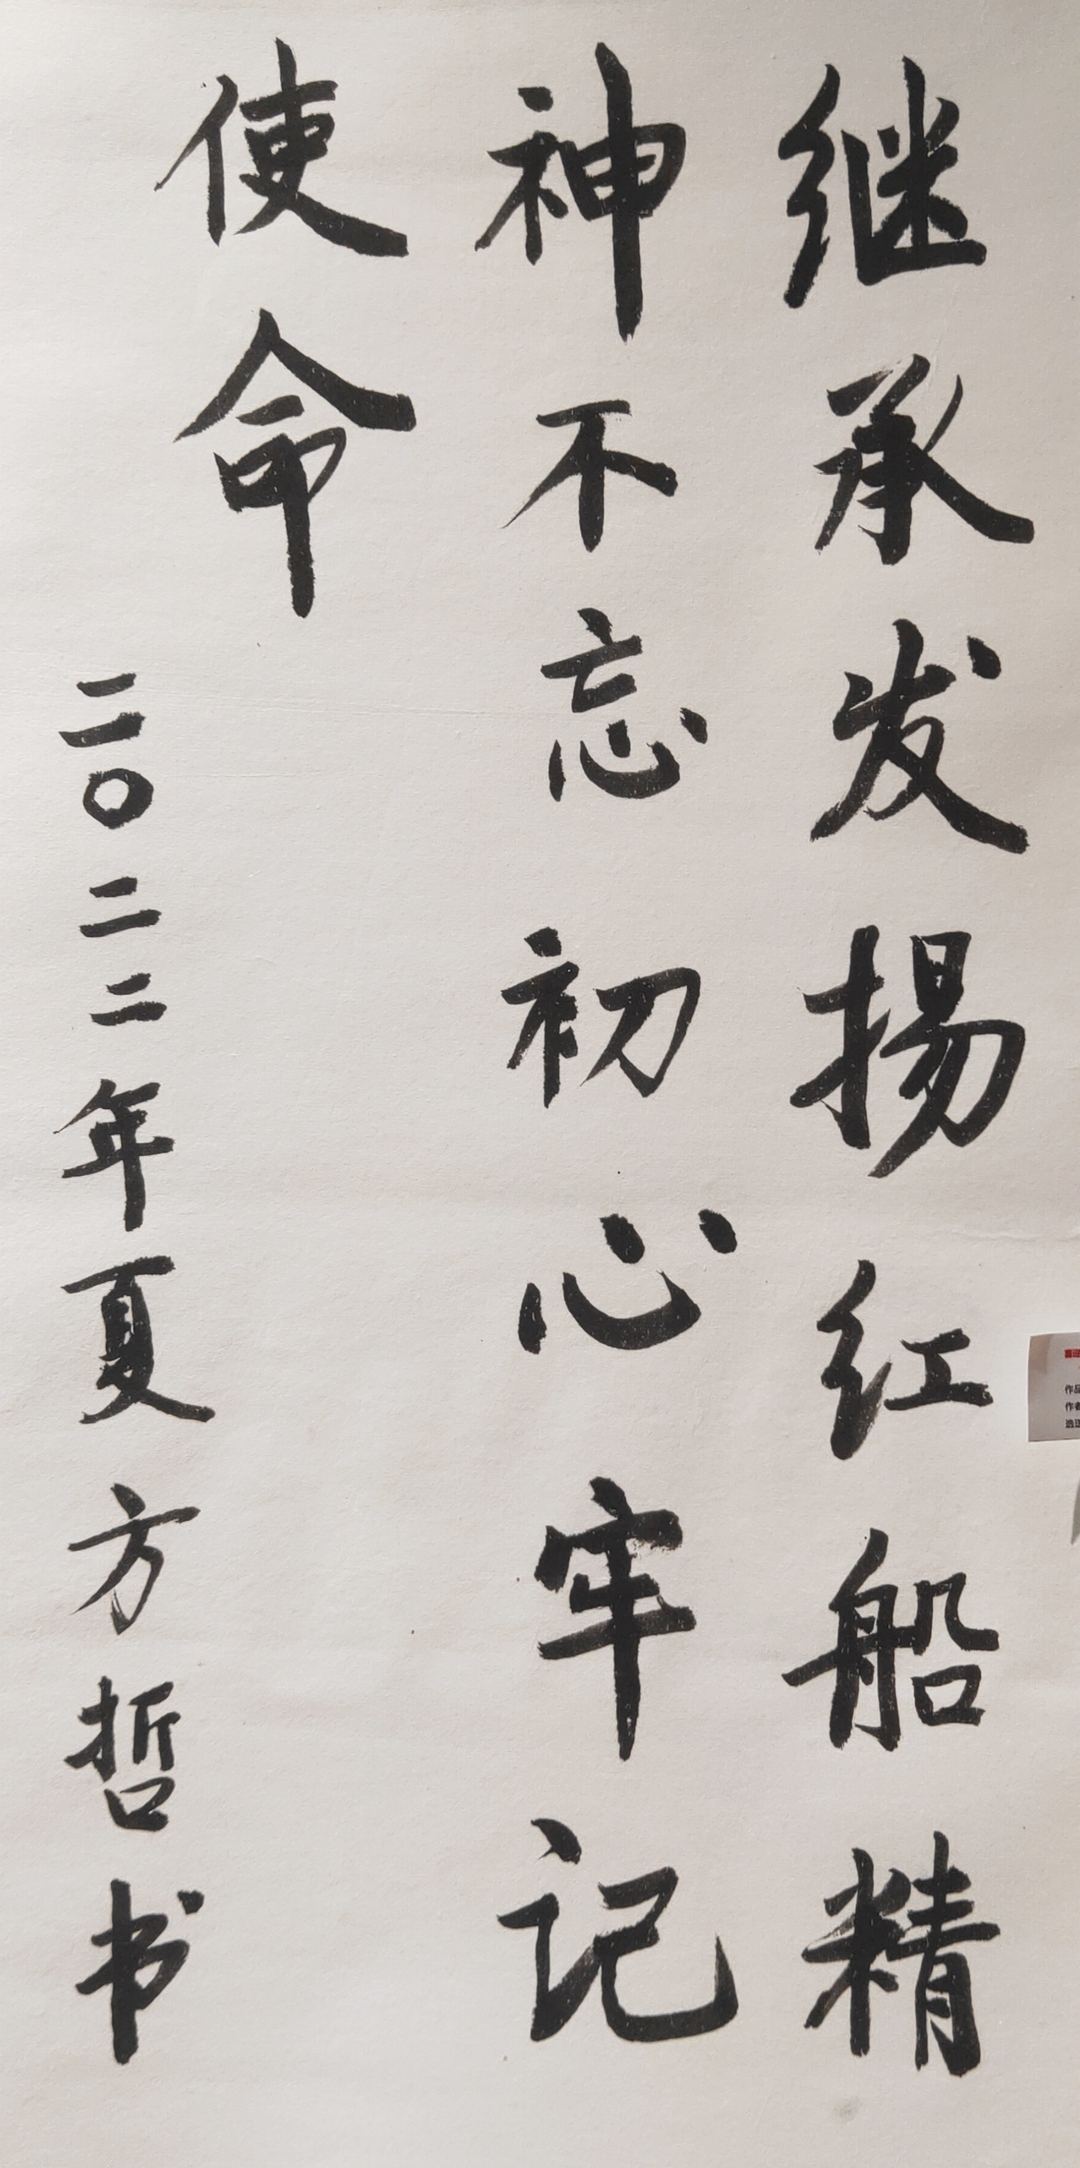 继承发揚红船精
神不忘初心牢记
使命
二〇二二年夏方哲书
作品
作者
选送